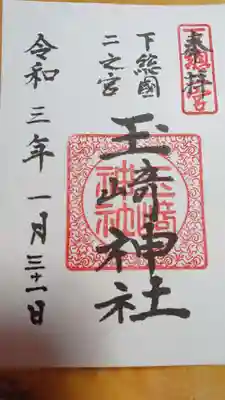 奉拝
下総國
二之宮
玉崎神社
令和三年一月三十一日